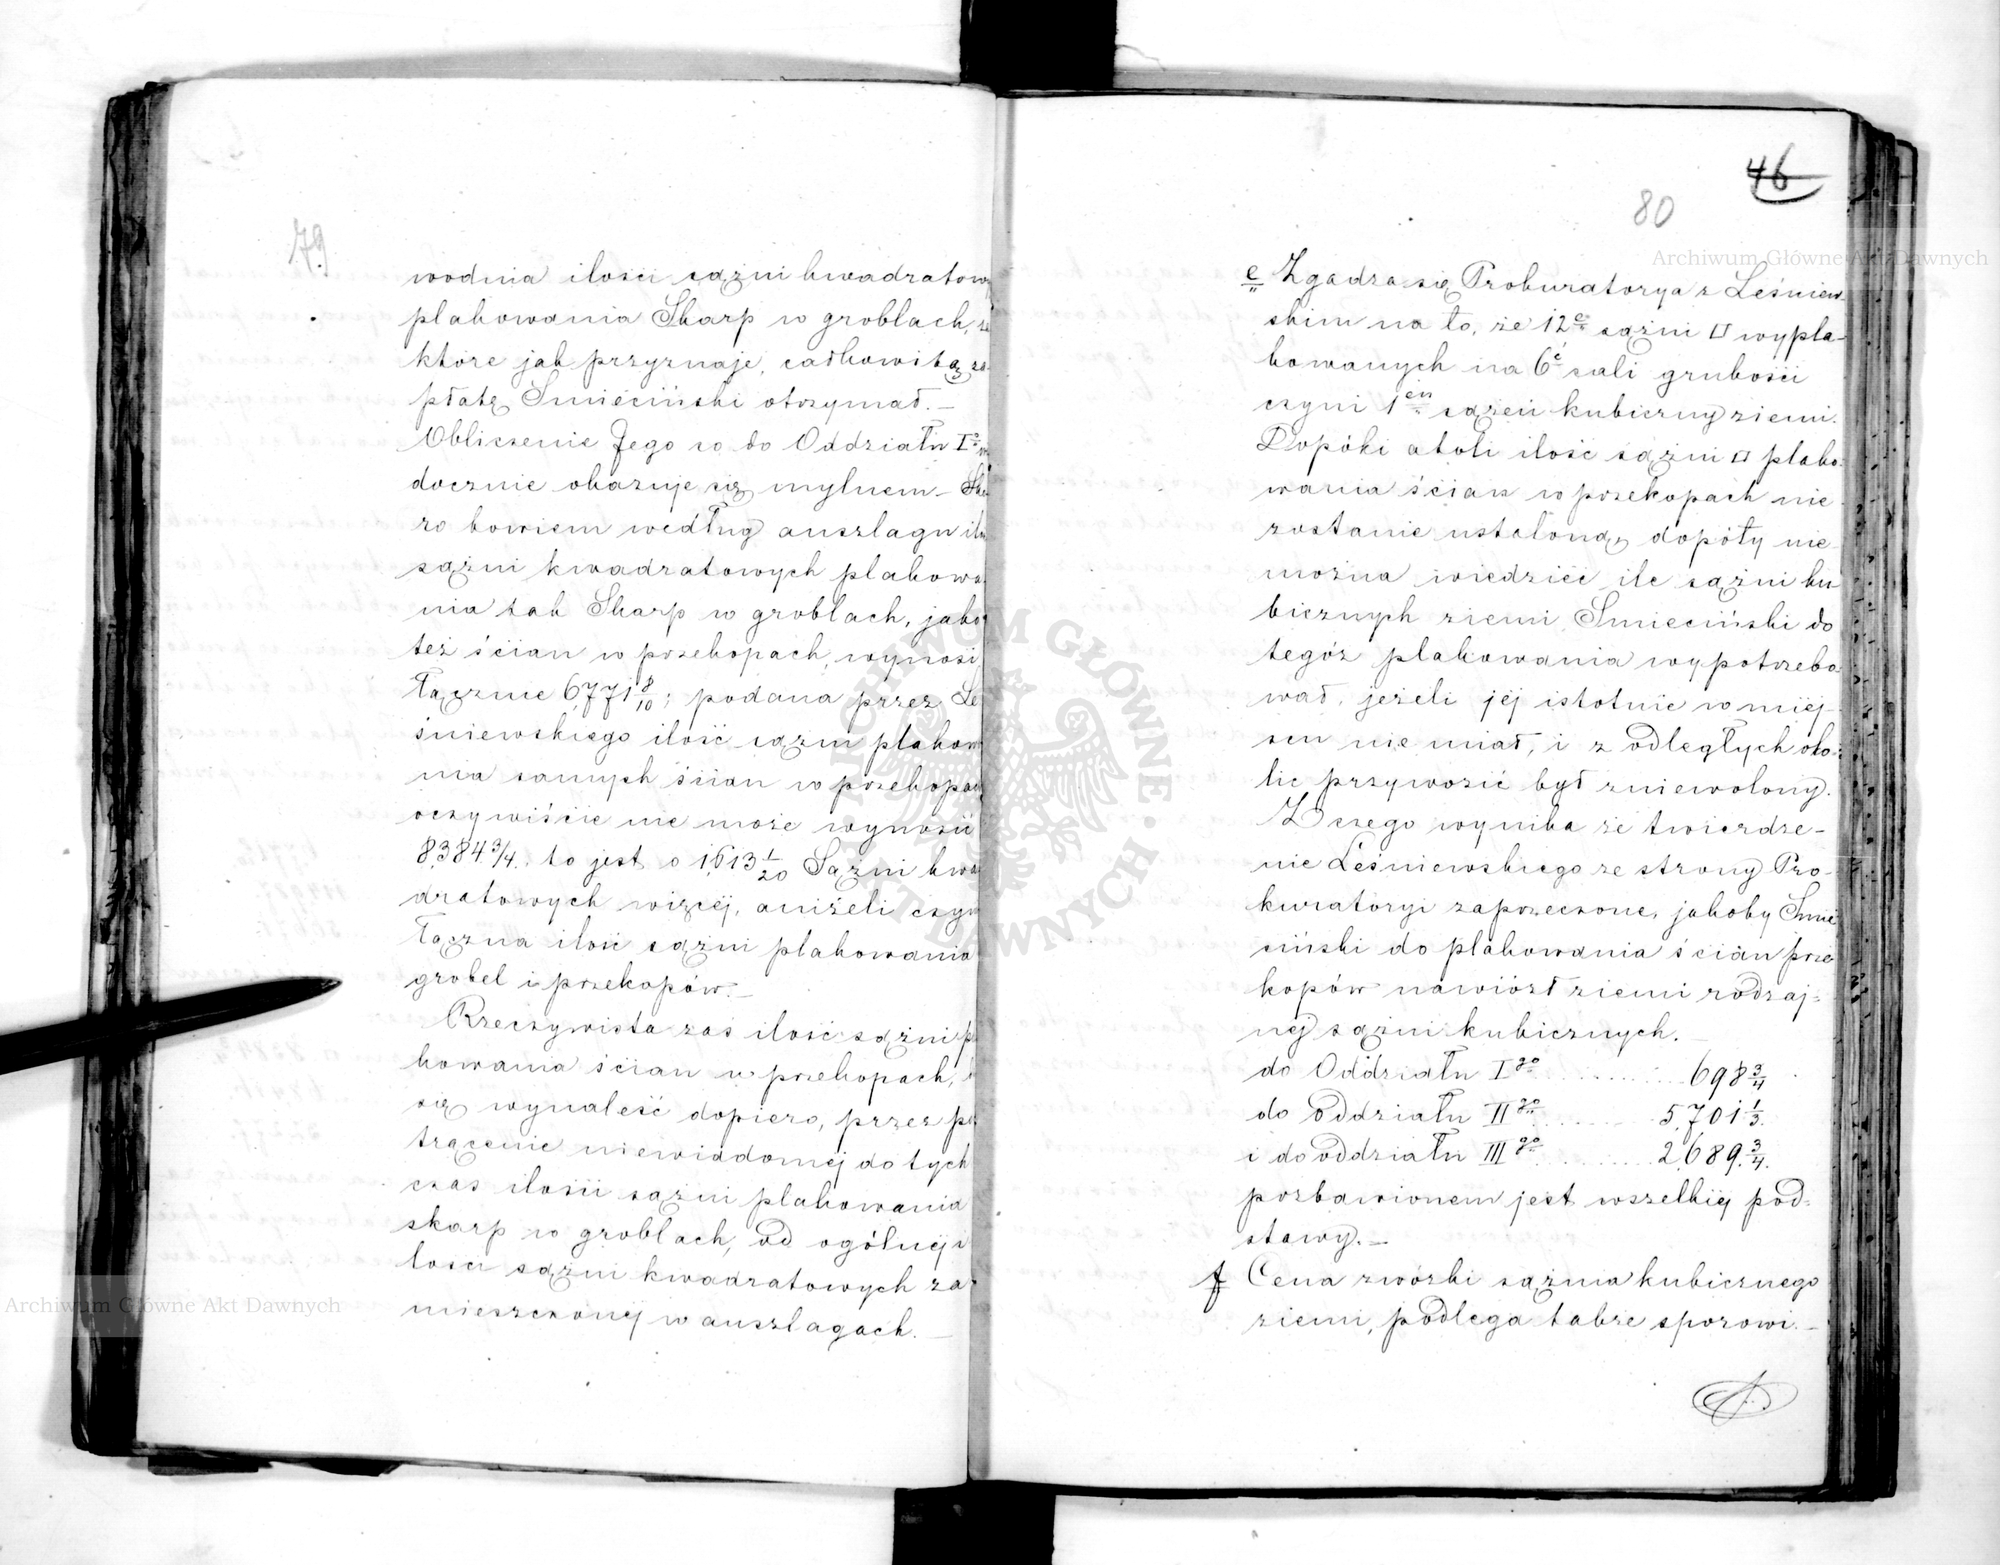 79
wodnia ilości sążni kwadratowy
plakowania Skarp w groblach, za
które jak przyznaje, całkowitą za-
płatę Smieciński otrzymał. —
Obliczenie Jego co do Oddziału Iº
docznie okazuje się mylnem – Sko
ro bowiem według anszlagu ilo
sążni kwadratowych plakowa
nia tak Skarp w groblach, jako
też ścian w przekopach, wynosi
łącznie 6,771 8/10; podana przez Le
śniewskiego ilość sążni plakow
nia samych ścian w przekopac
oczywiście nie może wynosić
8,384 3/4. to jest o 1,613 1/20 Sążni kwa
dratowych więcej, aniżeli czyn
łączna ilość sążni plakowania
grobel i przekopów. —
Rzeczywista zaś ilość sążni p
kowania ścian w przekopach,
się wynaleść dopiero, przez po
trącenie niewiadomej do tych
czas ilości sążni plakowania
skarp w groblach, od ogólnej i
lości sążni kwadratowych za
mieszczonej w anszlagach. —
46
80
e Zgadza się Prokuratorya z Leśniew
skim na to, że 12º sążni □ wypla-
kowanych na 6ć cali grubości
czyni 1en sążeń kubiczny ziemi.
Dopóki atoli ilość sążni □ plako-
wania ścian w przekopach nie
zostanie ustaloną, dopóty nie
można wiedzieć ile sążni ku
bicznych ziemi Smieciński do
tegóż plakowania wypotrzebo
wał, jeżeli jej istotnie w miej-
scu nie miał, i z odległych oko-
lic przywozić był zniewolony.
Z czego wynika że twierdze-
nie Leśniewskiego ze strony Pro-
kuratoryi zaprzeczone, jakoby Smie
ciński do plakowania ścian prze
kopów nawiózł ziemi rodzaj-
nej sążni kubicznych.
do Oddziału Igo ........... 698 3/4
do Oddziału IIgo ........ 5,701 1/3.
i do oddziału IIIgo .......... 2,689. 3/4.
pozbawionem jest wszelkiej pod-
stawy. —
f Cena zwózki sążnia kubicznego
ziemi, podlega także sporowi. —
Archiwum Główne Akt Dawnych
Archiwum Główne Akt Dawnych
ARCHIWUM GŁÓWNE AKT DAWNYCH